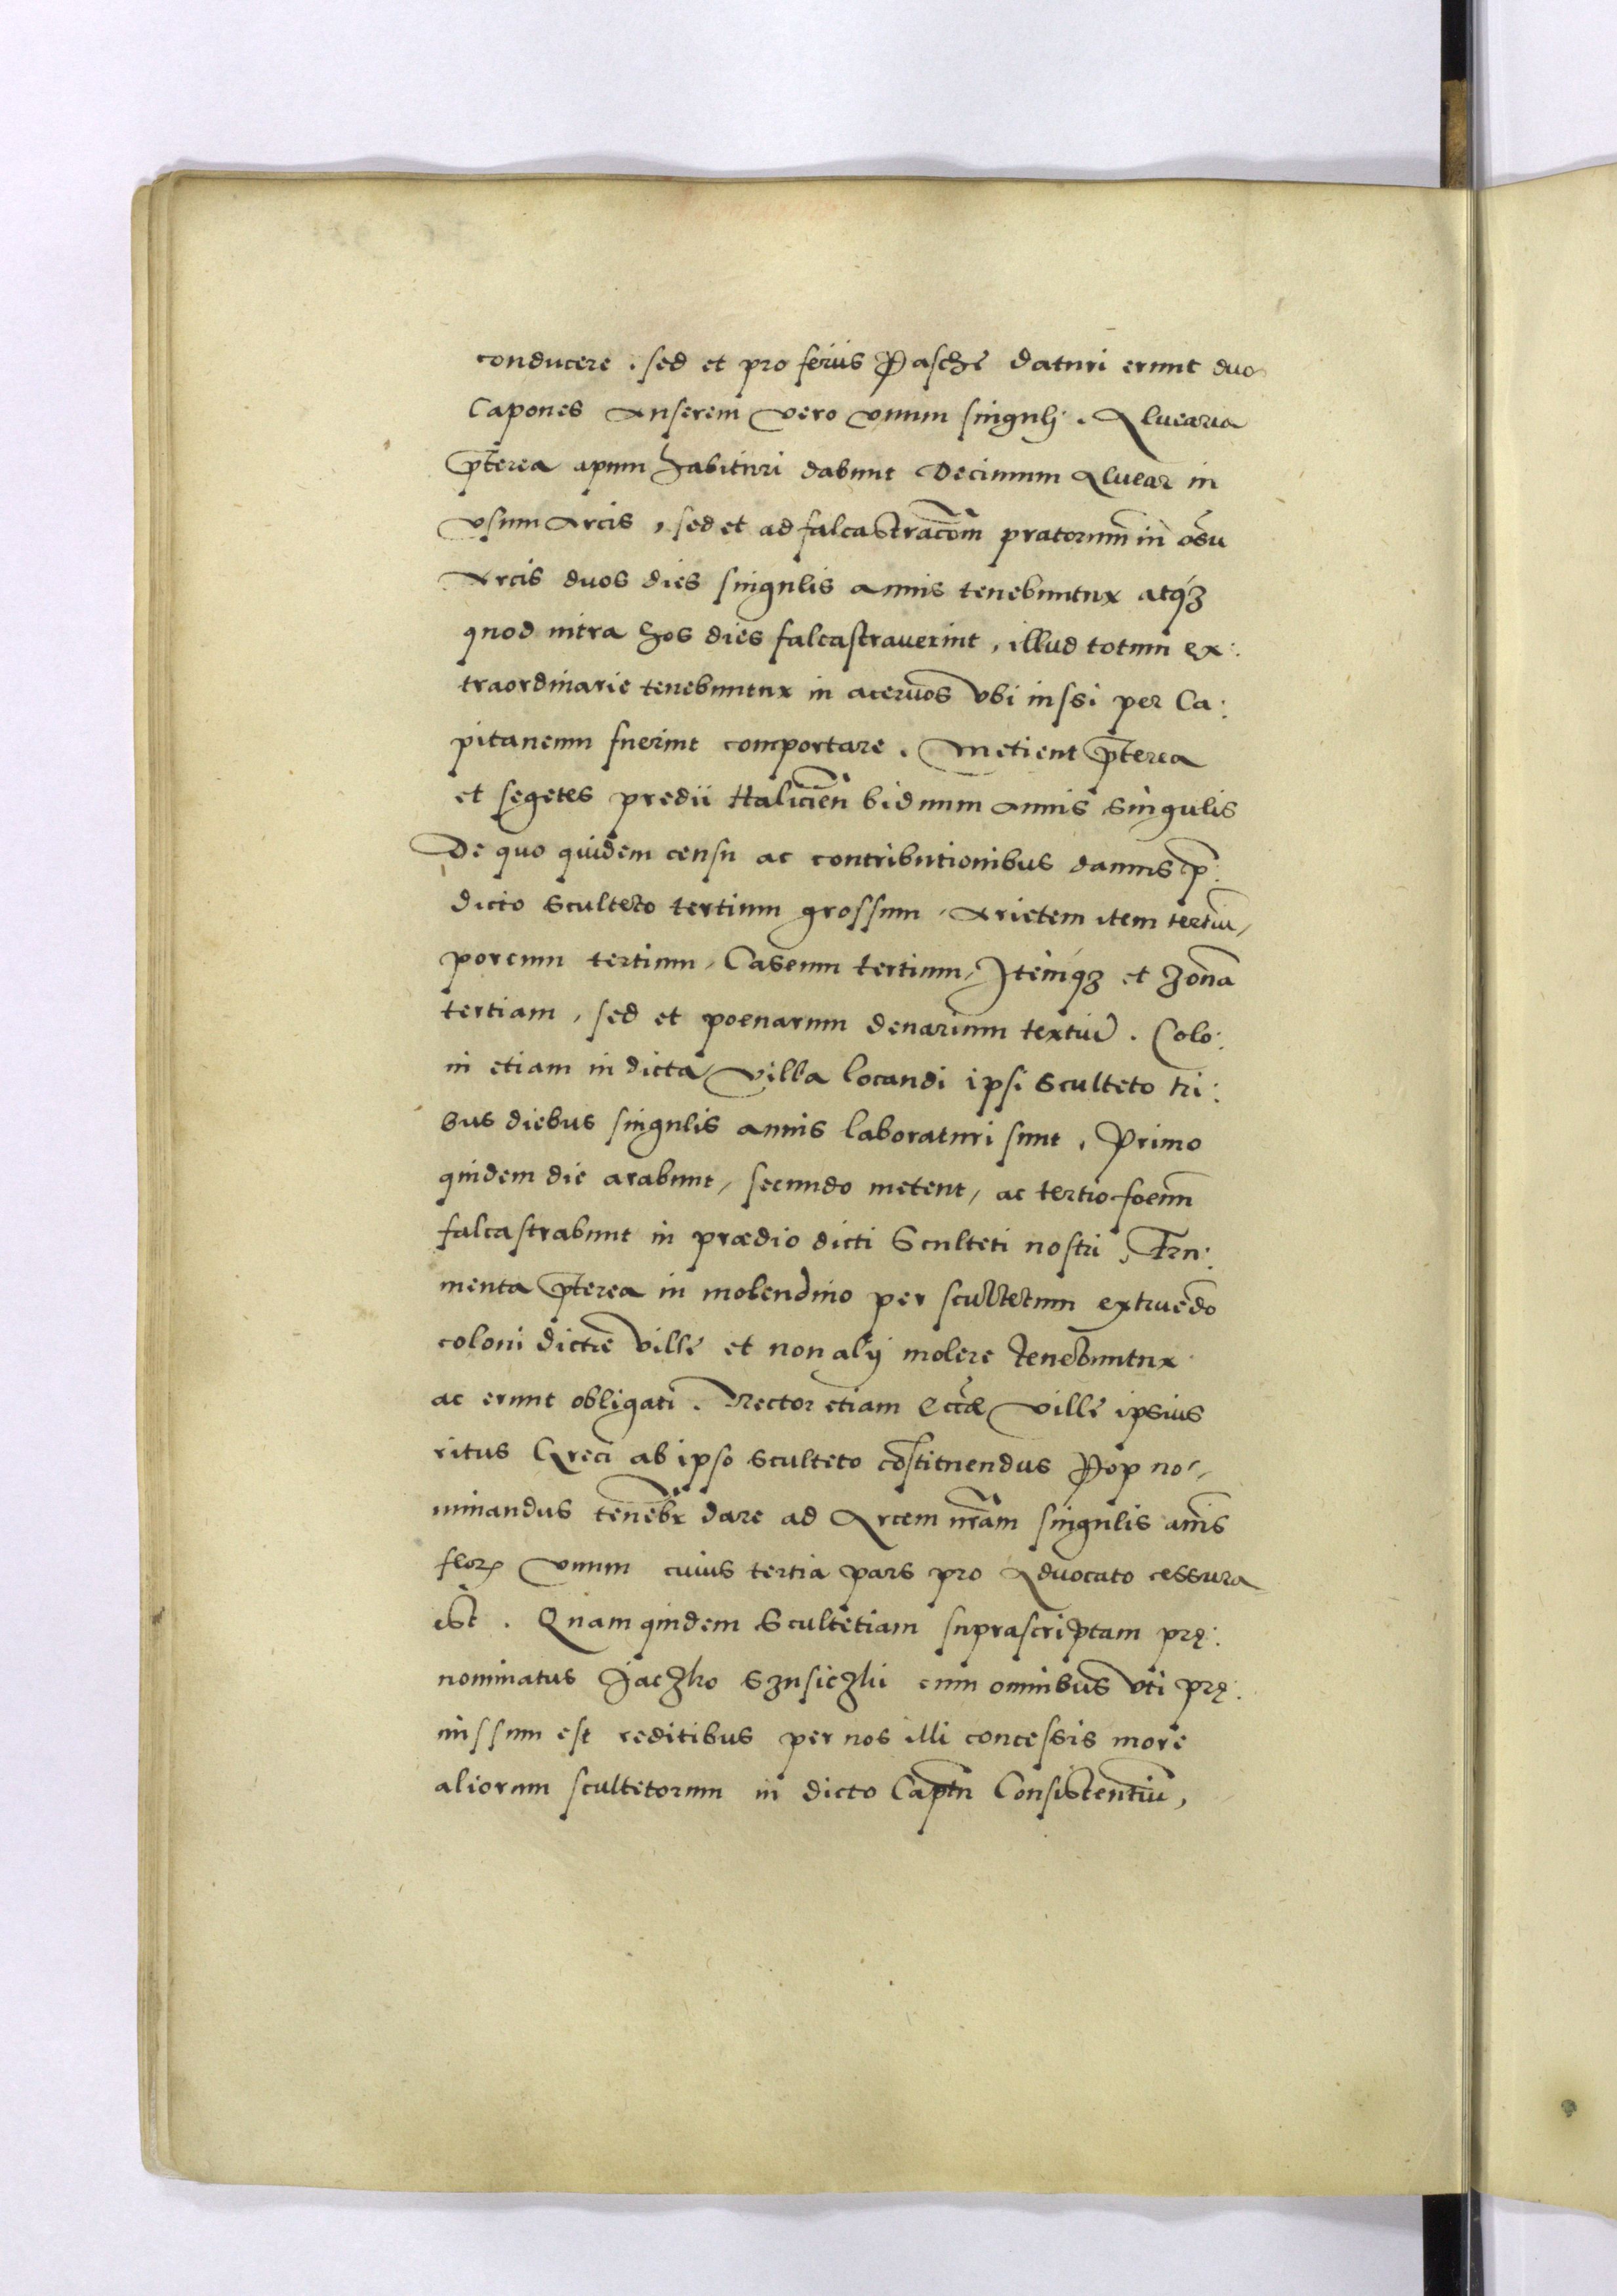 conducere . sed et pro feriis Paschę daturi erunt duos
Capones Anserem vero vnum singulj . Aluearia
p̄terea apum habituri dabunt Decimum Aluear in
vsum Arcis , sed et ad falcastrac̄om̄ pratorum̄ in vsū
Arcis duos dies singulis annis tenebuntur atq́ꝫ
quod intra hos dies falcastrauerint , illud totum ex:
traordinarie tenebuntur in aceruos vbi iussi per Ca:
pitaneum fuerint comportare . Metient p̄terea
et segetes predii Halicien̄ biduum Annis singulis
De quo quidem censu ac contributionibus damus p̄:
dicto Sculteto tertium grossum , Arietem item tertiū,
porcum tertium , Caseum tertium , Itemq́ꝫ et Zonā
tertiam , sed et poenarum denarium tertiū . Colo:
ni etiam in dicta Villa locandi ipsi Sculteto tri:
bus diebus singulis annis laboraturi sunt . Primo
quidem die arabunt , secundo metent , ac tertio foenū
falcastrabunt in prædio dicti Sculteti nostri . Fru:
menta p̄terea in molendino per scultetum extruēdo
coloni dictę Villę et non alij molere tenebuntur
ac erunt obligati . Rector etiam Eccl̄æ Villę ipsius
ritus Greci ab ipso Sculteto cōstituendus Pop no-
minandus tenēbr̄ dare ad Arcem nr̄am singulis an̄is
flor̄ vnum cuius tertia pars pro Aduocato cessura
est . Quam quidem Scultetiam suprascriptam prę:
nominatus Jaczko Szusiczki cum omnibus vti prę:
missum est reditibus per nos illi concessis more
aliorum scultetorum in dicto Captn̄ Consistentiū ,